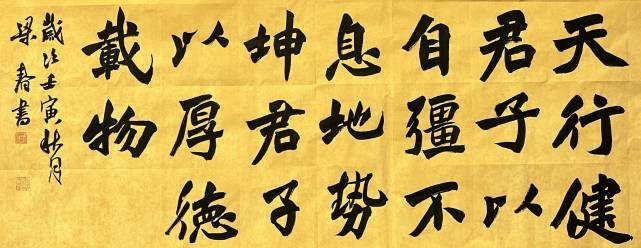 天行健
君子以
自彊不
息地勢
坤君子
以厚德
載物
歲次壬寅秋月
梁春書